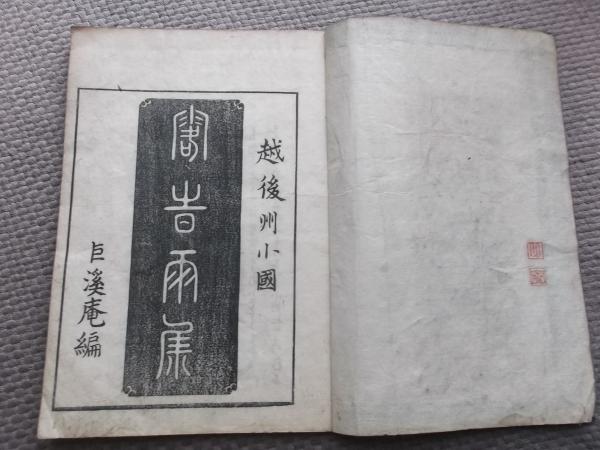 越後州小國
雨集
巨溪庵編